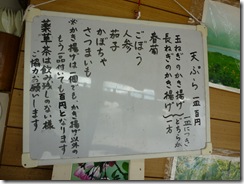 天ぷら 一皿百円
玉ねぎのかき揚げ
長ねぎのかき揚げ
どちらか一方
一皿につき
春菊
ごぼう
人参
茄子
かぼちゃ
さつまいも
※かき揚げは一個でも、かき揚げ以外の
もう一品付いても百円となります
薬草茶は飲み残しのない様
ご協力願います